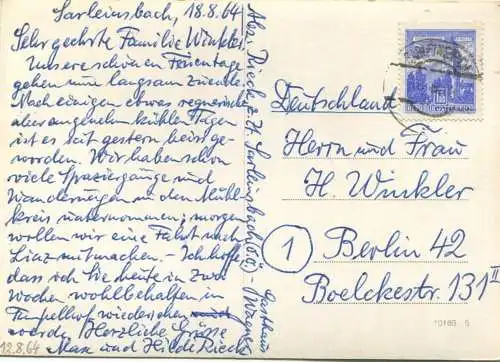 Sarleinsbach, 18.8.64
Sehr geehrte Familie Winkler,
Unsere schönen Ferientage
gehen nun langsam zu Ende.
Nach einigen etwas regnerischen
aber angenehm kühlen Tagen
ist es seit gestern heiß ge-
worden. Wir haben schon
viele Spaziergänge und
Wanderungen in den Mühl-
kreis unternommen; morgen
wollen wir eine Fahrt nach
Linz mitmachen. – Ich hoffe,
dass ich Sie heute in zwei
Wochen wohlbehalten in
Tempelhof wiedersehen
werde. Herzliche Grüsse
Max und Hilde Rieck
12.8.64
Abs. Rieck z. Zt. Sarleinsbach (OÖ) – Gasthaus
Deutschland
Herrn und Frau
H. Winkler
1 Berlin 42
Boelckestr. 131 II
10186 5